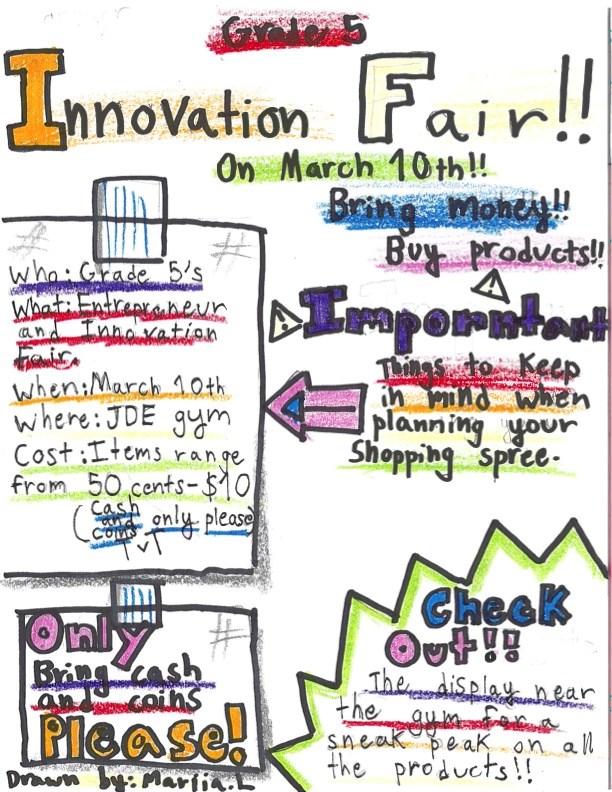 Grade 5
Innovation Fair!!
On March 10th!!
Bring money!!
Buy products!!
Who: Grade 5's
What: Entrepreneur
and Innovation
Fair.
When: March 10th
Where: JDE gym
Cost: Items range
from 50 cents-$10
(cash and coins only please)
TvT
Imporntant
Things to Keep
in mind when
planning your
Shopping spree.
Only
Bring cash
and coins
Please!
Drawn by: Marjia.L
Check
Out!!
The display near
the gym for a
sneak peak on all
the products!!